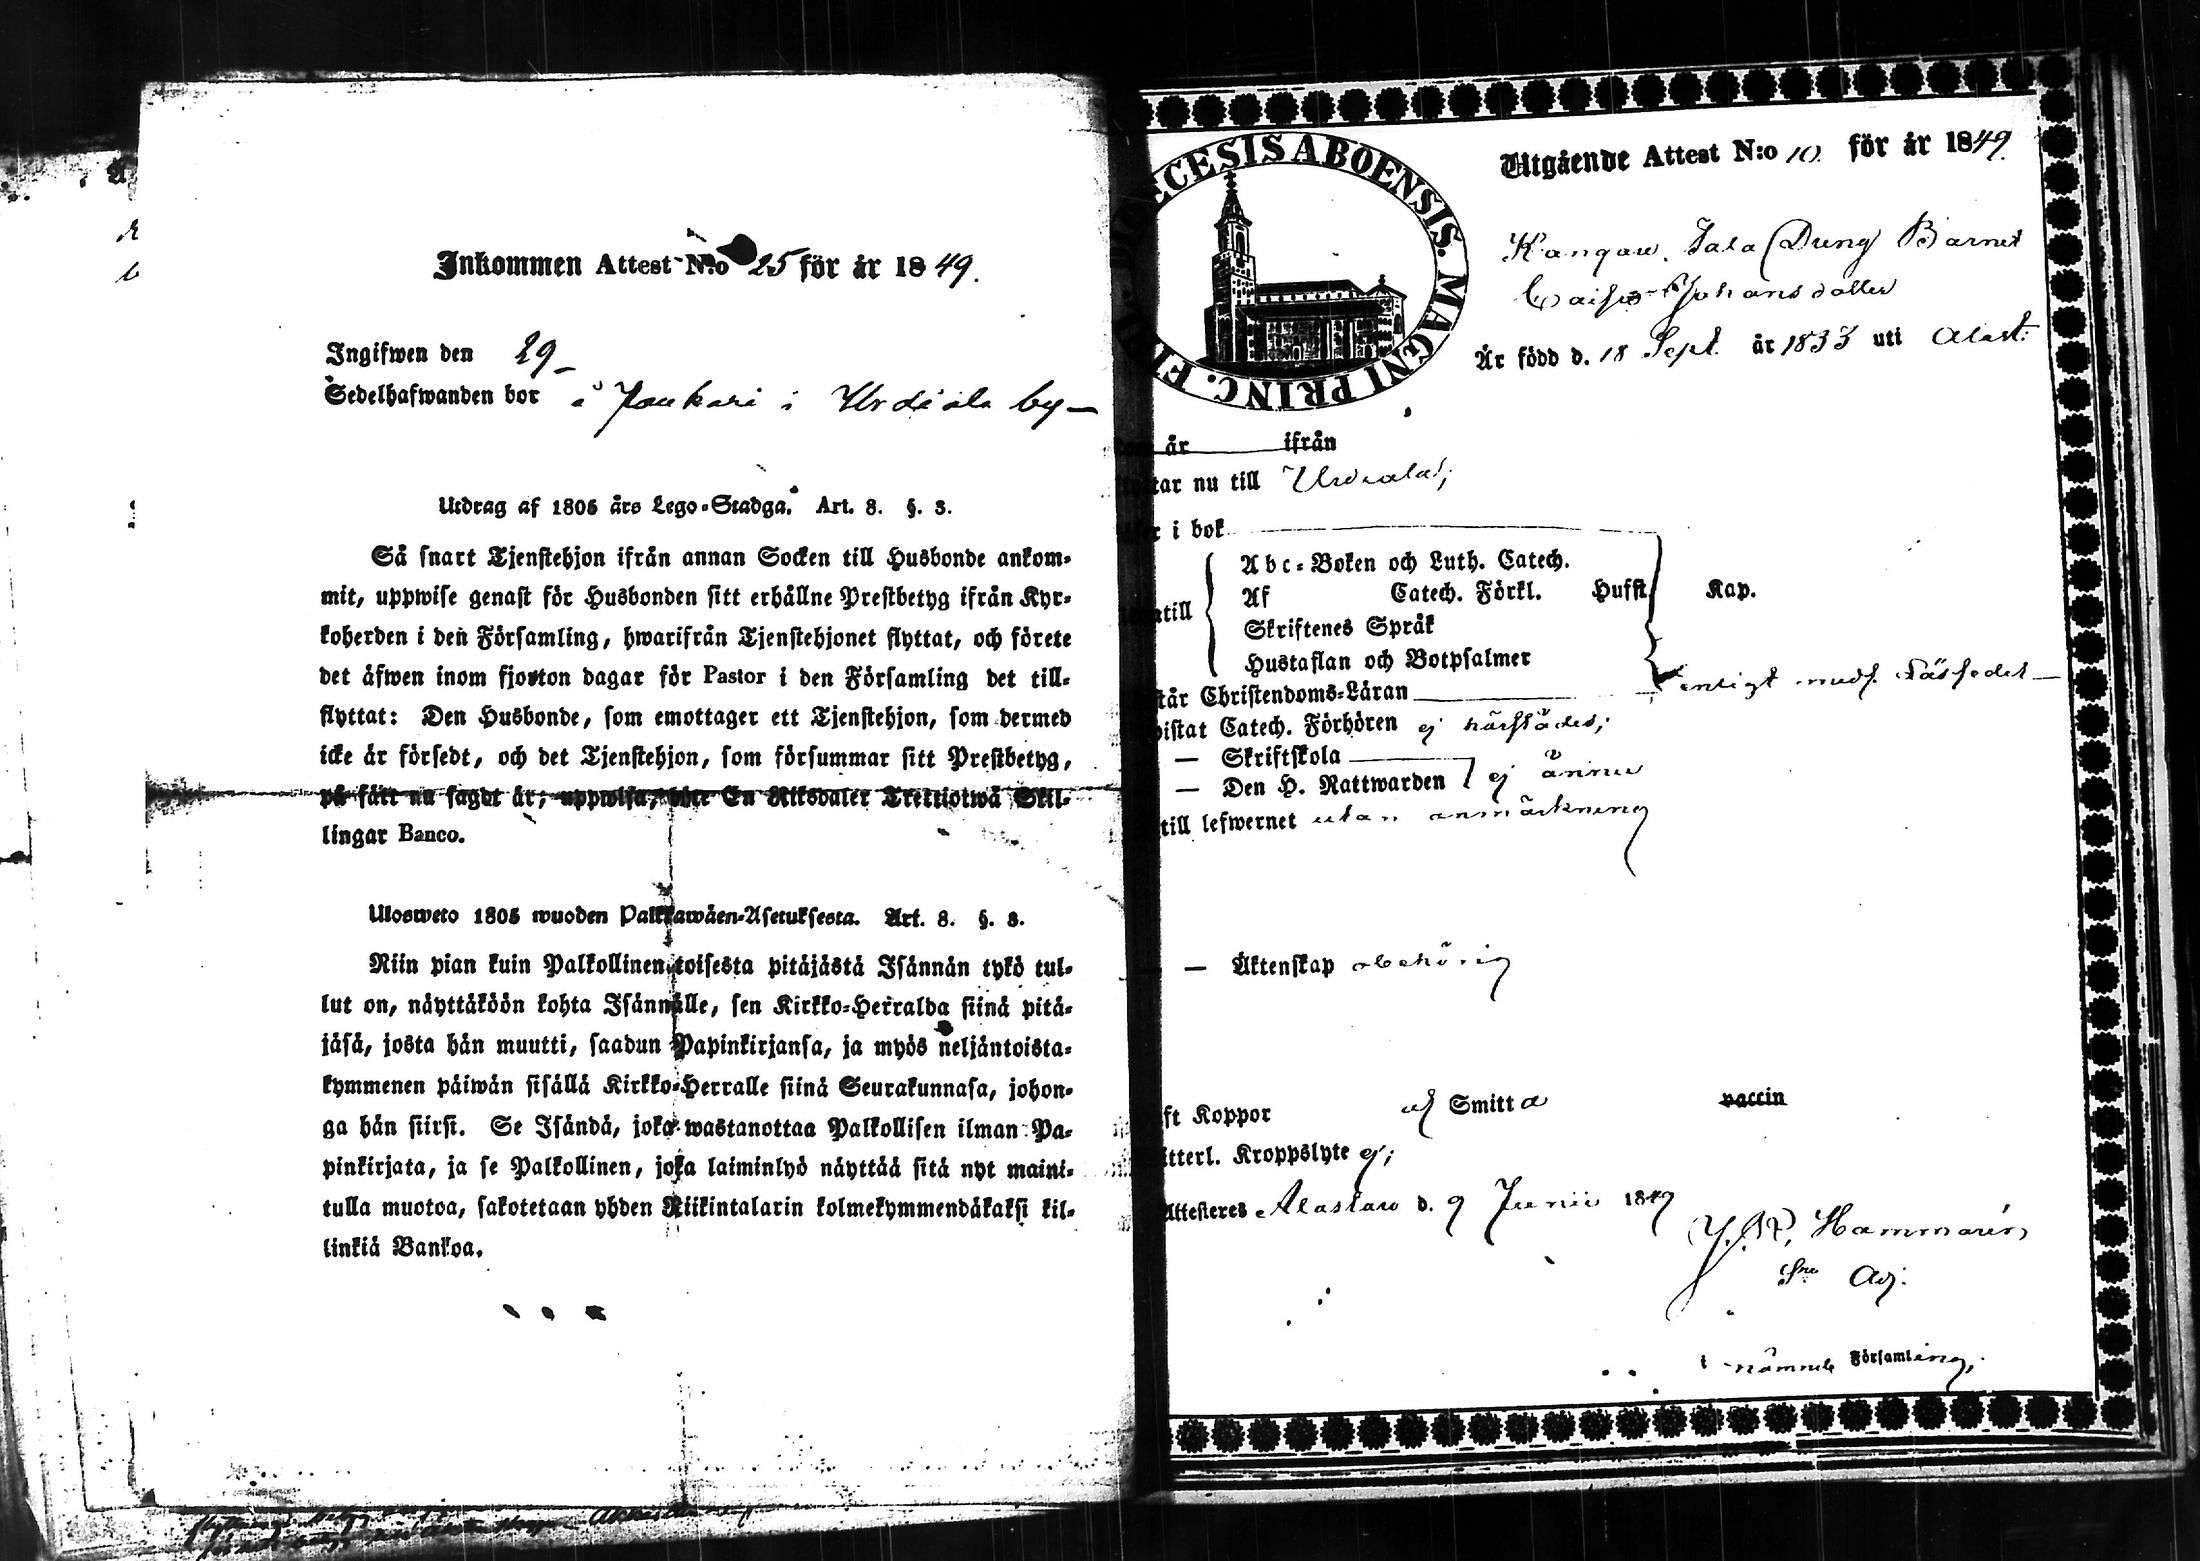 Inkommen Attest N:o 25 för år 1849.
Ingifwen den 29
Sedelhafwanden bor å Joukari i Urdiala by
Utdrag af 1805 års Lego-Stadga. Art. 8. §. 3.
Så snart Tjenstehjon ifrån annan Socken till Husbonde ankom-
mit, uppwise genast för Husbonden sitt erhållne Prestbetyg ifrån Kyr-
koherden i den Församling, hwarifrån Tjenstehjonet flyttat, och förete
det äfwen inom fjorton dagar för Pastor i den Församling det till-
flyttat: Den Husbonde, som emottager ett Tjenstehjon, som dermed
icke är försedt, och det Tjenstehjon, som försummar sitt Prestbetyg,
på sätt nu sagdt är, uppwisa, böte En Riksdaler Trettiotwå Skil-
lingar Banco.
Ulosweto 1805 wuoden Palkkawäen-Asetuksesta. Art. 8. §. 3.
Niin pian kuin Palkollinen toisesta pitäjästä Isännän tykö tul-
lut on, näyttäköön kohta Isännälle, sen Kirkko-Herralda siinä pitä-
jäsä, josta hän muutti, saadun Papinkirjansa, ja myös neljäntoista-
kymmenen päiwän sisällä Kirkko-Herralle siinä Seurakunnasa, johon-
ga hän siirsi. Se Isändä, joka wastanottaa Palkollisen ilman Pa-
pinkirjata, ja se Palkollinen, joka laiminlyö näyttää sitä nyt maini-
tulla muotoa, sakotetaan yhden Riikintalarin kolmekymmendäkaksi kil-
linkiä Bankoa.
DIOECESIS ABOENSIS. MAGNI PRINC.
Utgående Attest N:o 10. för år 1849.
Kangare, Tala (Dreng) Barnet
Caisa Johansdotter
Är född d. 18 Sept. år 1833 uti Alast.
år ifrån
tar nu till Urdiala;
i bok
Abc-Boken och Luth. Catech.
Af Catech. Förkl. Hufst. Kap.
till
Skriftenes Språk
Hustaflan och Botpsalmer
enligt medf. Lässedel
står Christendoms-Läran
bistat Catech. Förhören ej härstädes;
— Skriftskola
— Den H. Nattwarden ej ännu
till lefwernet utan anmärkning
— Äktenskap obehörig
ft Koppor af Smitta vaccin
tterl. Kroppslyte ej;
Attesteres Alastaro d. 9 Junii 1849
Hammarén
Adj.
i nämnde Församling;